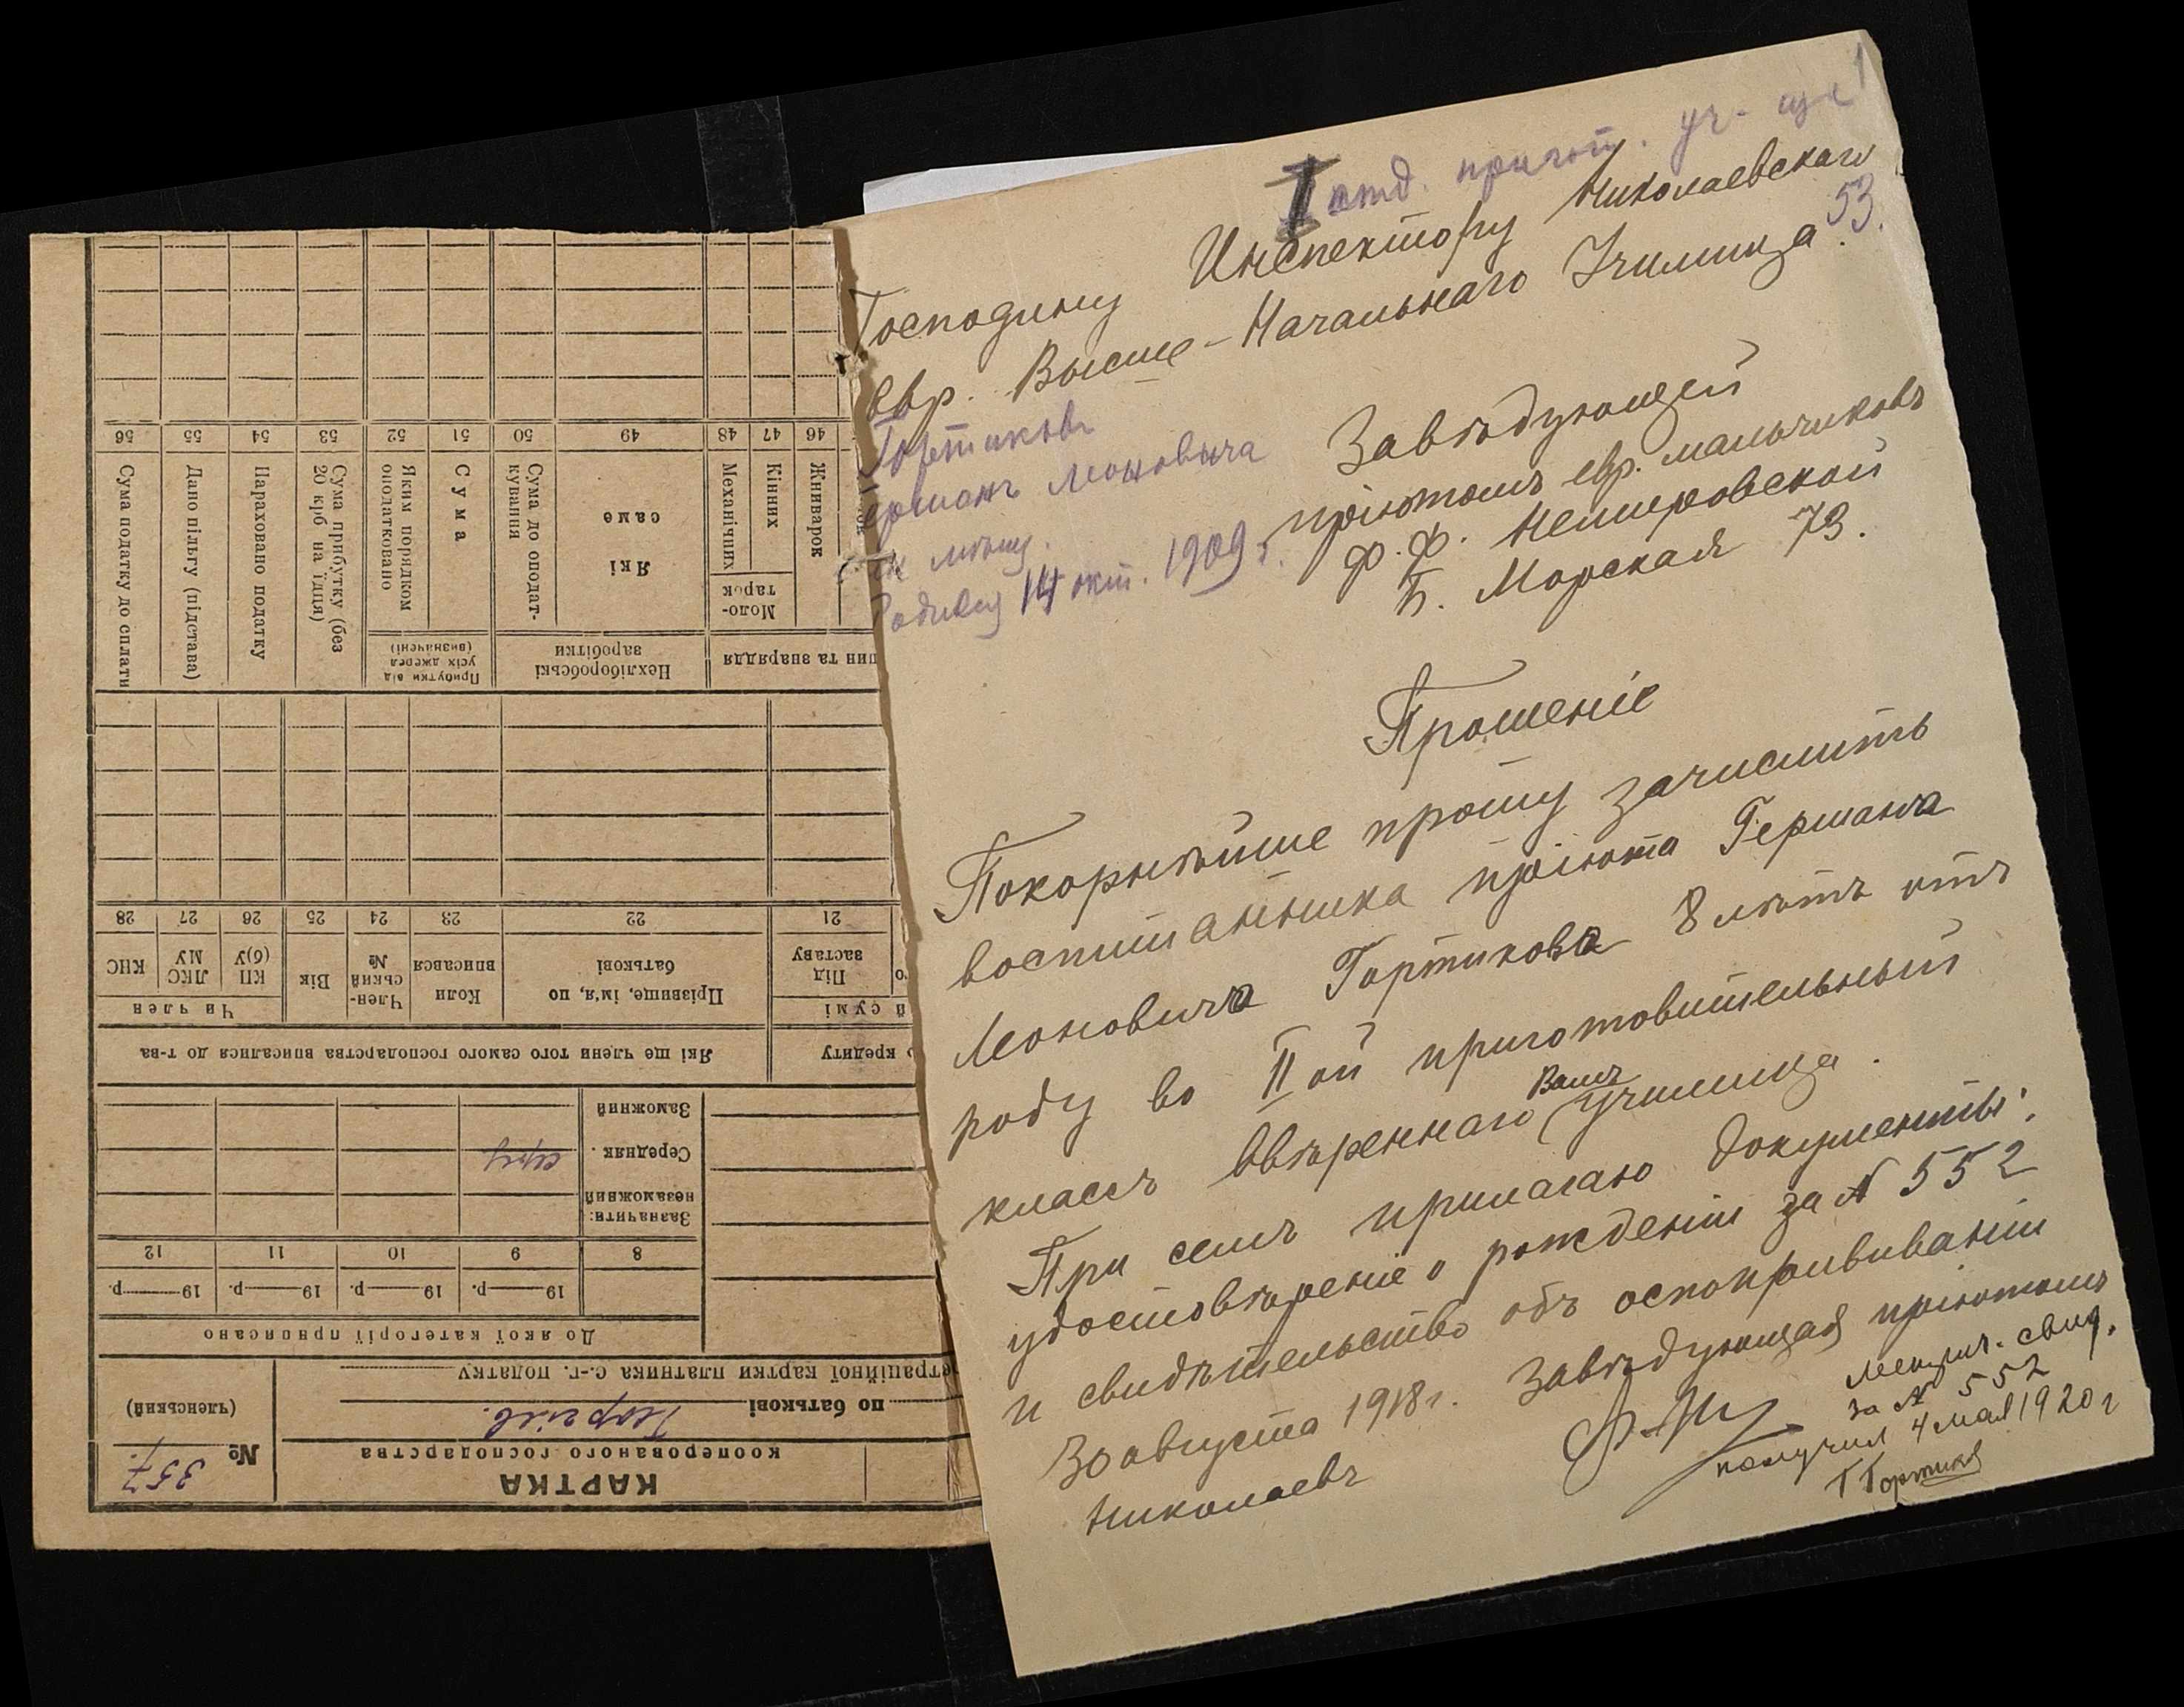 1
I отд. пригот. уч.
53.
Господину Инспектору Николаевскаго
Евр. Высше-Начальнаго Училища
Завѣдующей
пріютомъ евр. мальчиковъ
Ф. Ф. Немировской
Б. Морская 73.
Гортиковъ
Германъ Леоновича
мѣщ.
Родився 14 окт. 1909 г.
Прошеніе
Покорнѣйше прошу зачислить
воспитанника пріюта Германа
Леоновича Гортикова 8 лѣтъ отъ
роду во II ой приготовительный
классъ ввѣреннаго Вамъ училища.
При семъ прилагаю документы:
удостовѣреніе о рожденіи за № 552
и свидѣтельство объ оспопрививаніи
30 августа 1918 г. Завѣдующая пріютомъ
Николаевъ
Метрич. свид.
за № 552
получил 4 мая 1920 г
Г Гортиков
КАРТКА
кооперованого господарства
№ 357.
(членський)
по батькові Георгіев.
етраційної картки платника с.-г. податку
До якої категорії приписано
19 р. 19 р. 19 р. 19 р.
8 9 10 11 12
Зазначити:
незаможний
Середняк
Заможний
о кредиту
Які ще члени того самого господарства вписалися до т-ва
й сумі
Під заставу
Прізвище, ім'я, по батькові
Коли вписався
Член-ський №
Вік
Чи член
КП (б)У
ЛКС МУ
КНС
21 22 23 24 25 26 27 28
шин та знаряддя
Нехліборобські заробітки
Прибутки від усіх джерел (визначені)
Жниварок
Моло-тарок
Кінних
Механічних
Які саме
Сума до оподат-кування
Сума
Яким порядком оподатковано
Сума прибутку (без 20 крб на їдця)
Нараховано податку
Дано пільгу (підстава)
Сума податку до сплати
46 47 48 49 50 51 52 53 54 55 56